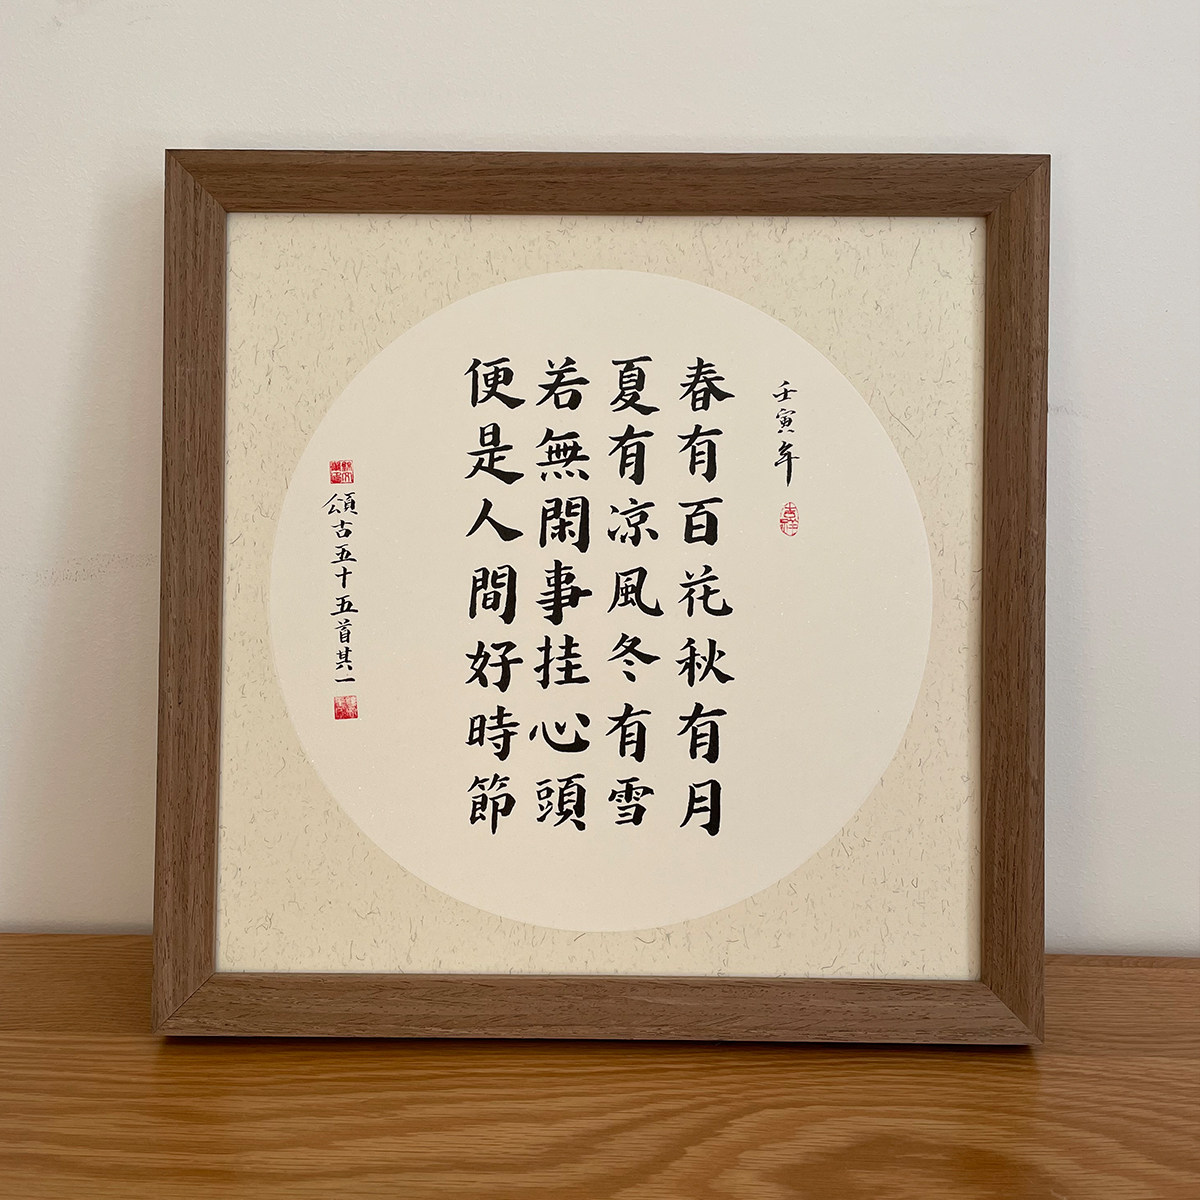 壬寅年
春有百花秋有月
夏有凉風冬有雪
若無閑事挂心頭
便是人間好時節
頌古五十五首其一